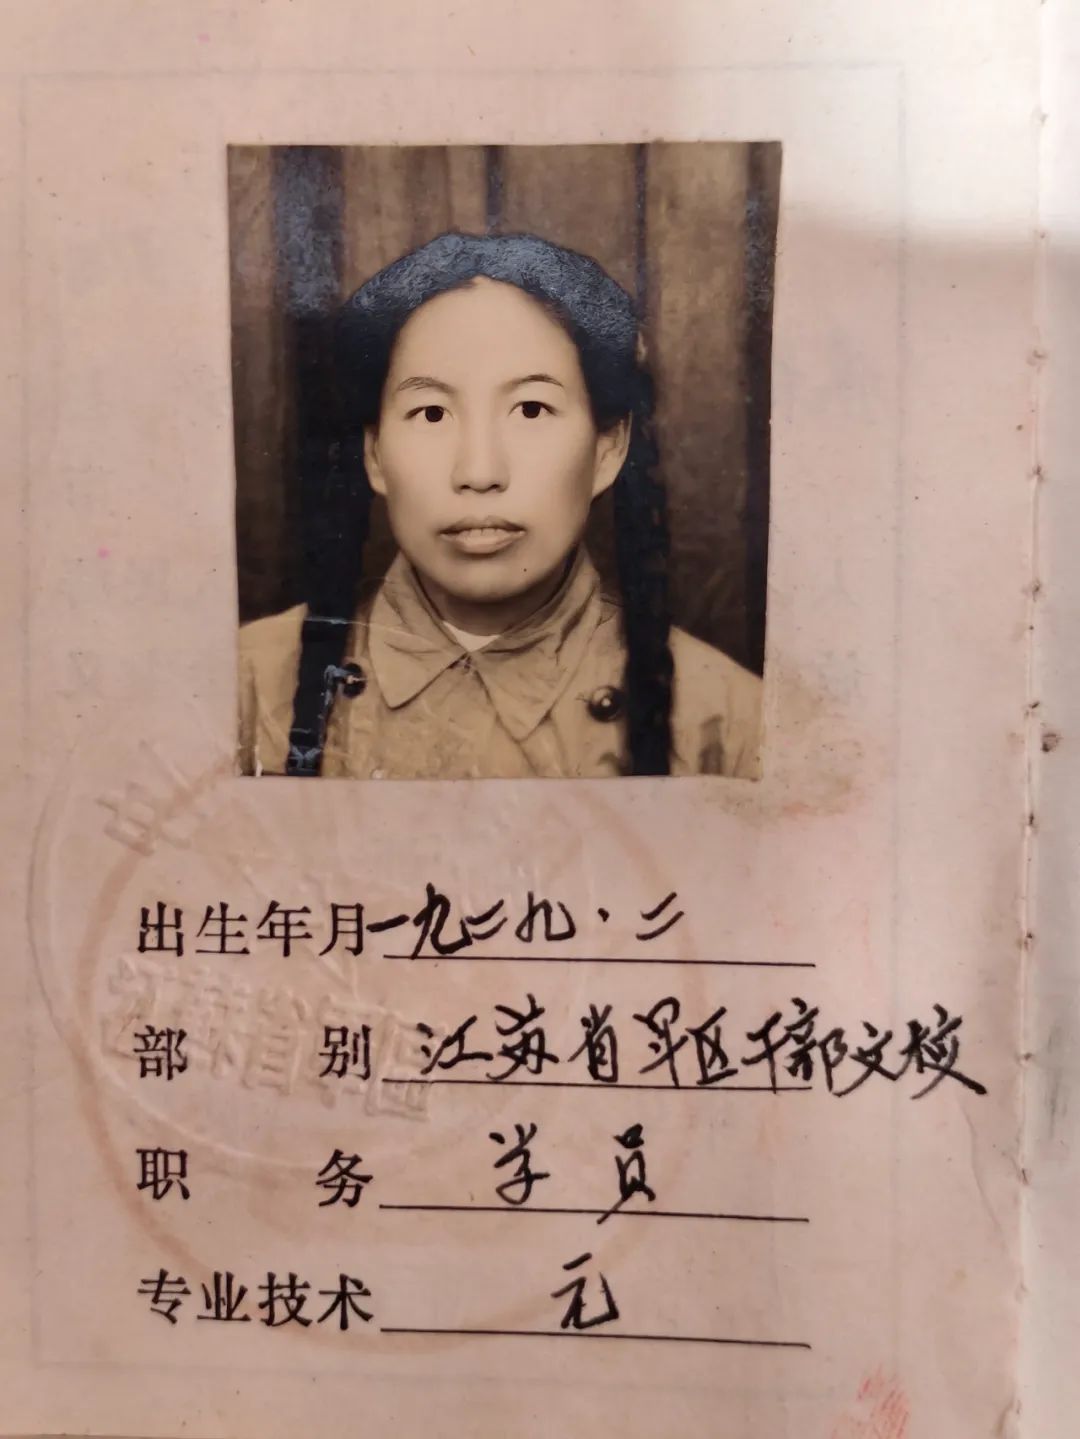 出生年月一九二九·二
部别 江苏省军区干部文校
职务 学员
专业技术 元